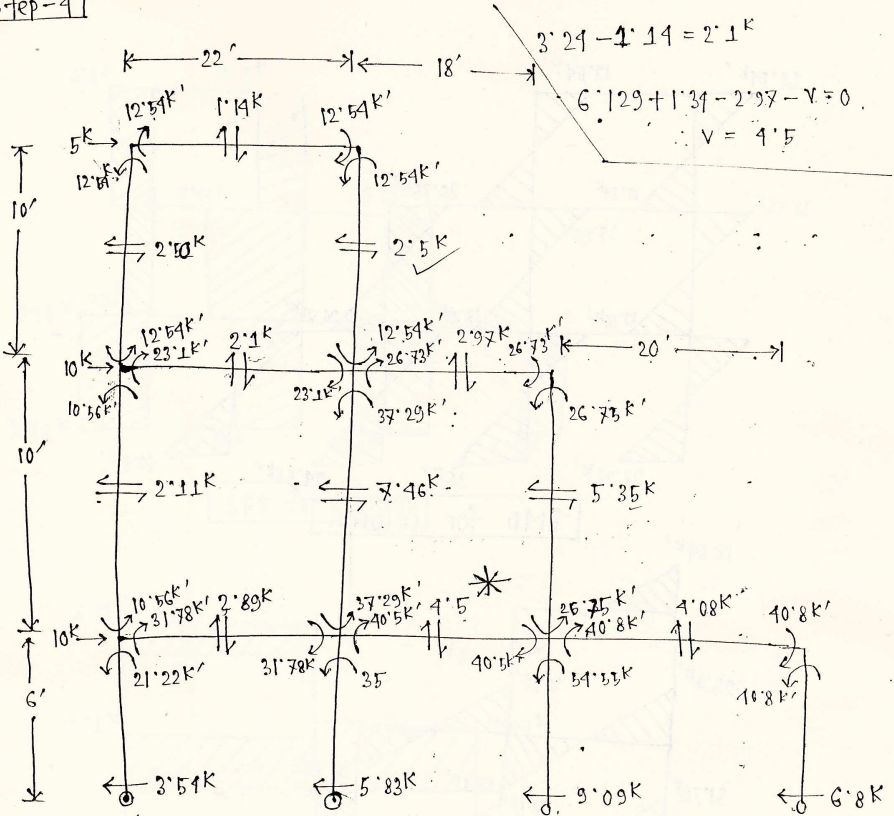 Step-4
3.24 - 1.14 = 2.1K
6.129 + 1.34 - 2.97 - V = 0
∴ V = 4.5
22'
18'
12.54K'
1.14K
12.54K'
5K
12.54K'
12.54K'
10'
2.50K
2.5K
12.54K'
23.1K'
2.1K
12.54K'
26.73K'
2.97K
26.73K'
20'
10K
10.56K'
23.1K'
37.29K'
26.75K'
10'
2.11K
7.46K
5.35K
10.56K'
31.78K'
2.89K
37.29K'
40.5K'
4.5
26.75K'
40.8K'
4.08K
40.8K'
10K
21.22K'
31.78K
35
40.5K'
54.55K
40.8K'
6'
3.54K
5.83K
9.09K
6.8K